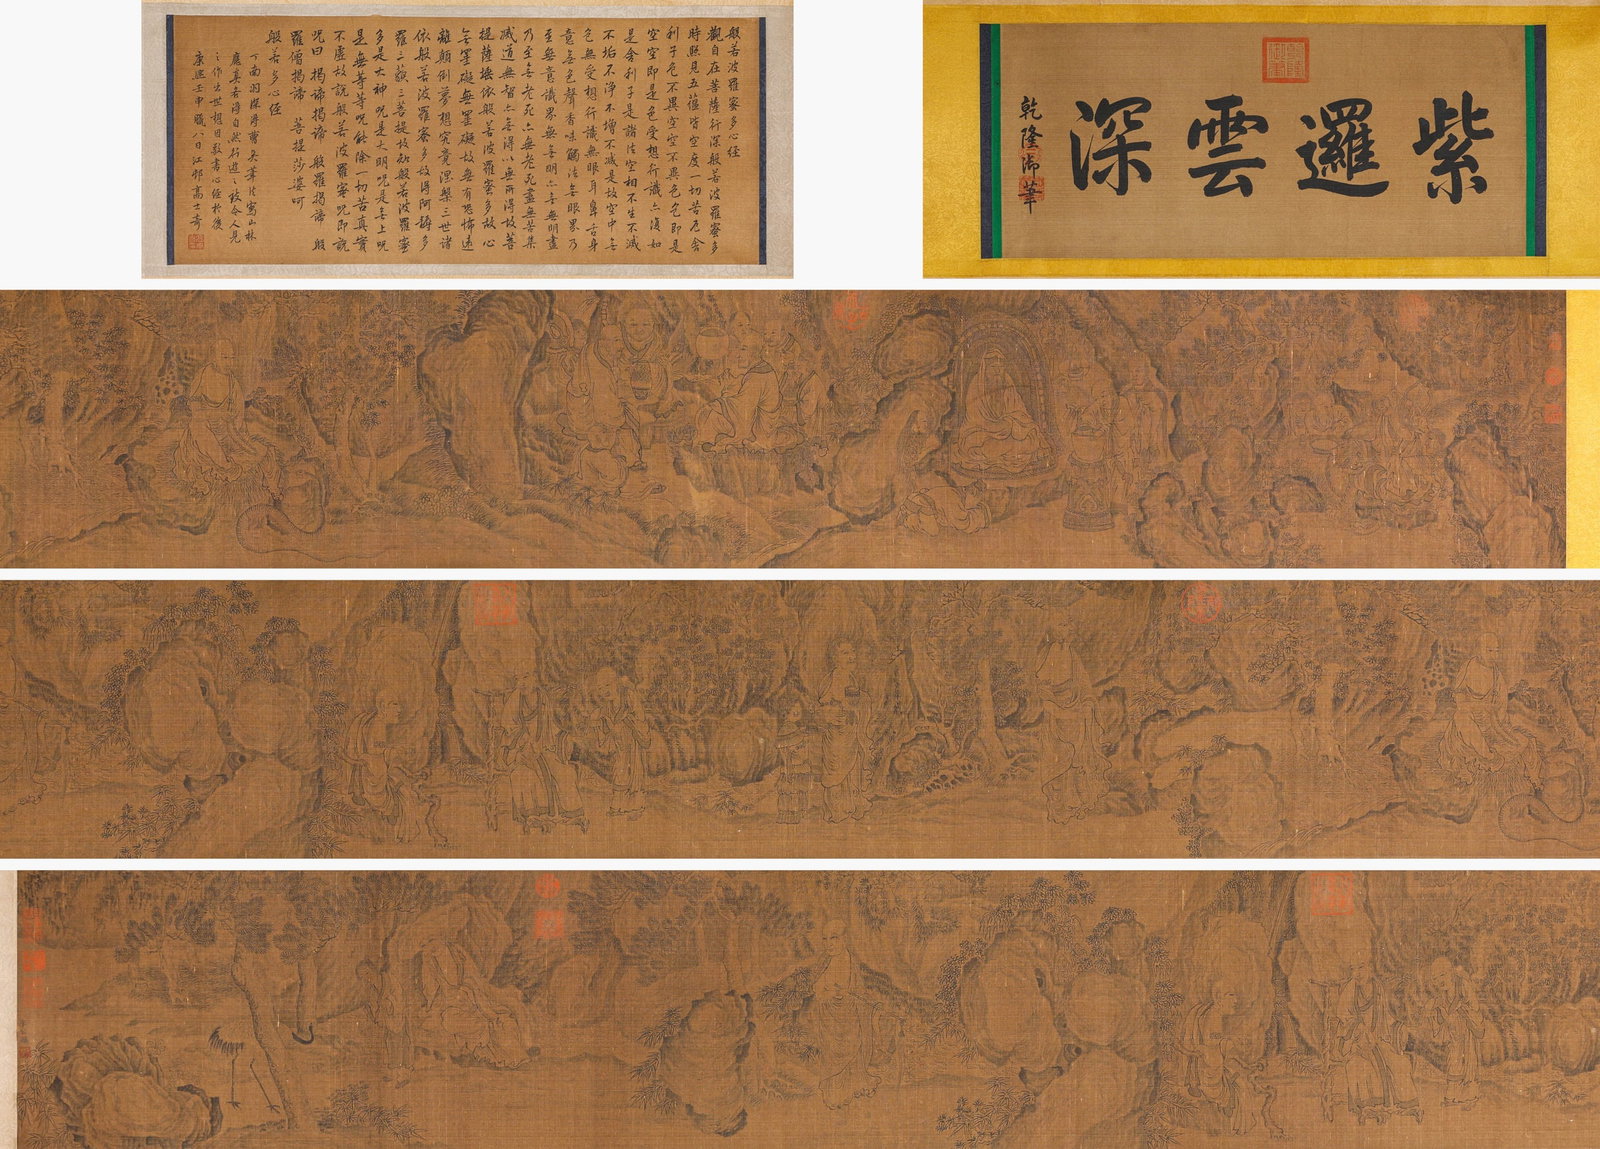 紫邏雲深
乾隆御筆
般若波羅蜜多心經
觀自在菩薩行深般若波羅蜜多
時照見五蘊皆空度一切苦厄舍
利子色不異空空不異色色即是
空空即是色受想行識亦復如
是舍利子是諸法空相不生不滅
不垢不淨不增不減是故空中無
色無受想行識無眼耳鼻舌身
意無色聲香味觸法無眼界乃
至無意識界無無明亦無無明盡
乃至無老死亦無老死盡無苦集
滅道無智亦無得以無所得故菩
提薩埵依般若波羅蜜多故心
無罣礙無罣礙故無有恐怖遠
離顛倒夢想究竟涅槃三世諸
依般若波羅蜜多故得阿耨多
羅三藐三菩提故知般若波羅蜜
多是大神咒是大明咒是無上咒
是無等等咒能除一切苦真實
不虛故說般若波羅蜜咒即說
咒曰 揭諦揭諦 般羅揭諦 般
羅僧揭諦 菩提莎婆呵
般若多心經
丁南羽深得曹吳筆法寫山林
應真者得自然行遊之致令人見
之作出世想因敬書心經於後
康熙壬申臘八日江邨高士奇